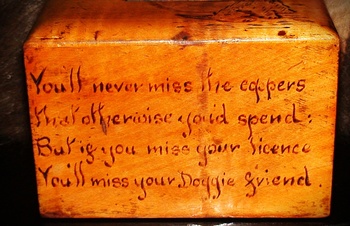 You'll never miss the coppers
that otherwise you'd spend:
But if you miss your licence
You'll miss your Doggie friend.